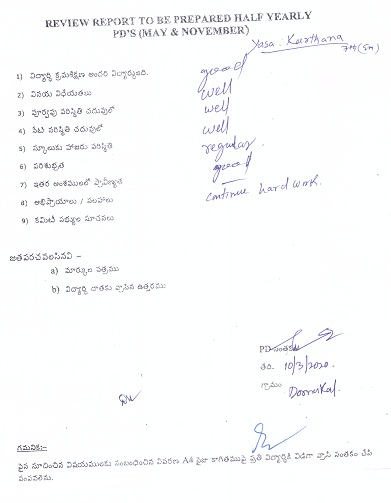 REVIEW REPORT TO BE PREPARED HALF YEARLY
PD'S (MAY & NOVEMBER)
Yasa. Karthana
7th (Em)
1) విద్యార్థి క్రమశిక్షణ అందరి విద్యార్థులది. good
2) వినయ విధేయతలు well
3) పూర్వపు పరిస్థితి చదువులో well
4) నేటి పరిస్థితి చదువులో well
5) స్కూలుకు హాజరు పరిస్థితి regular
6) పరిశుభ్రత good
7) ఇతర అంశములలో ప్రావీణ్యత
8) అభిప్రాయాలు / సలహాలు continue hard work.
9) కమిటీ సభ్యుల సూచనలు
జతపరచవలసినవి –
a) మార్కుల పత్రము
b) విద్యార్థి దాతకు వ్రాసిన ఉత్తరము
PD సంతకం
తేది. 10/3/2020.
గ్రామం Doornakal.
గమనిక:-
పైన సూచించిన విషయములకు సంబంధించిన వివరణ A4 సైజు కాగితముపై ప్రతి విద్యార్థికి విడిగా వ్రాసి సంతకం చేసి
పంపవలెను.